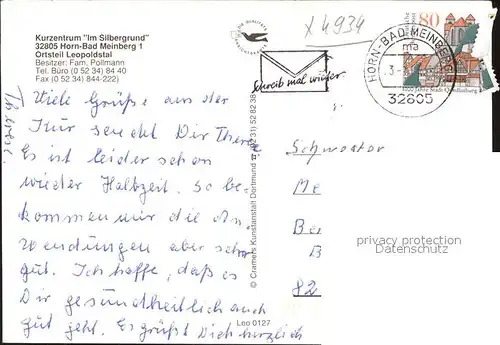 Kurzentrum "Im Silbergrund"
32805 Horn-Bad Meinberg 1
Ortsteil Leopoldstal
Besitzer: Fam. Pollmann
Tel. Büro (0 52 34) 84 40
Fax (0 52 34) 844-222)
Viele Grüße aus der
Kur sendet Dir Therese
Es ist leider schon
wieder Halbzeit. So be-
kommen mir die An-
wendungen aber sehr
gut. Ich hoffe, daß es
Dir gesundheitlich auch
gut geht. Es grüßt Dich herzlich
Therese.
© Cramers Kunstanstalt Dortmund
Leo 0127
x 4934
Schreib mal wieder
80
HORN-BAD MEINBERG
ma
32805
1000 Jahre Stadt Quedlinburg
Schwester
Me
Be
B
82
privacy protection
Datenschutz